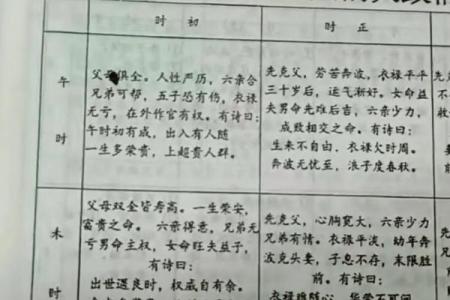 时初
时正
午
时
父母俱全。人性严历，六亲合
兄弟可帮，五子恐有伤。衣禄
无亏，在外作官有权。有诗曰：
午时初有成，出入有人随
一生多荣贵，上超贵人群。
先克父，劳苦奔波，衣禄平平
三十岁后，运气渐好。女命益
夫男命先难后吉，六亲少力，
成败相交之命。有诗曰：
生来不自由，衣禄欠时周。
奔波无忧至，浪子度春秋。
未
时
父母双全皆寿高。一生荣安，
富贵之命。六亲得意，兄弟无
亏男命主权，女命旺夫益子，
有诗曰：
出世遇良时，权威自有余。
先克父，心胸宽大，六亲少力
兄弟有情。衣禄平淡，幼年奔
波克头妻，子息不存，末限胜
前。有诗曰：
衣禄难随心